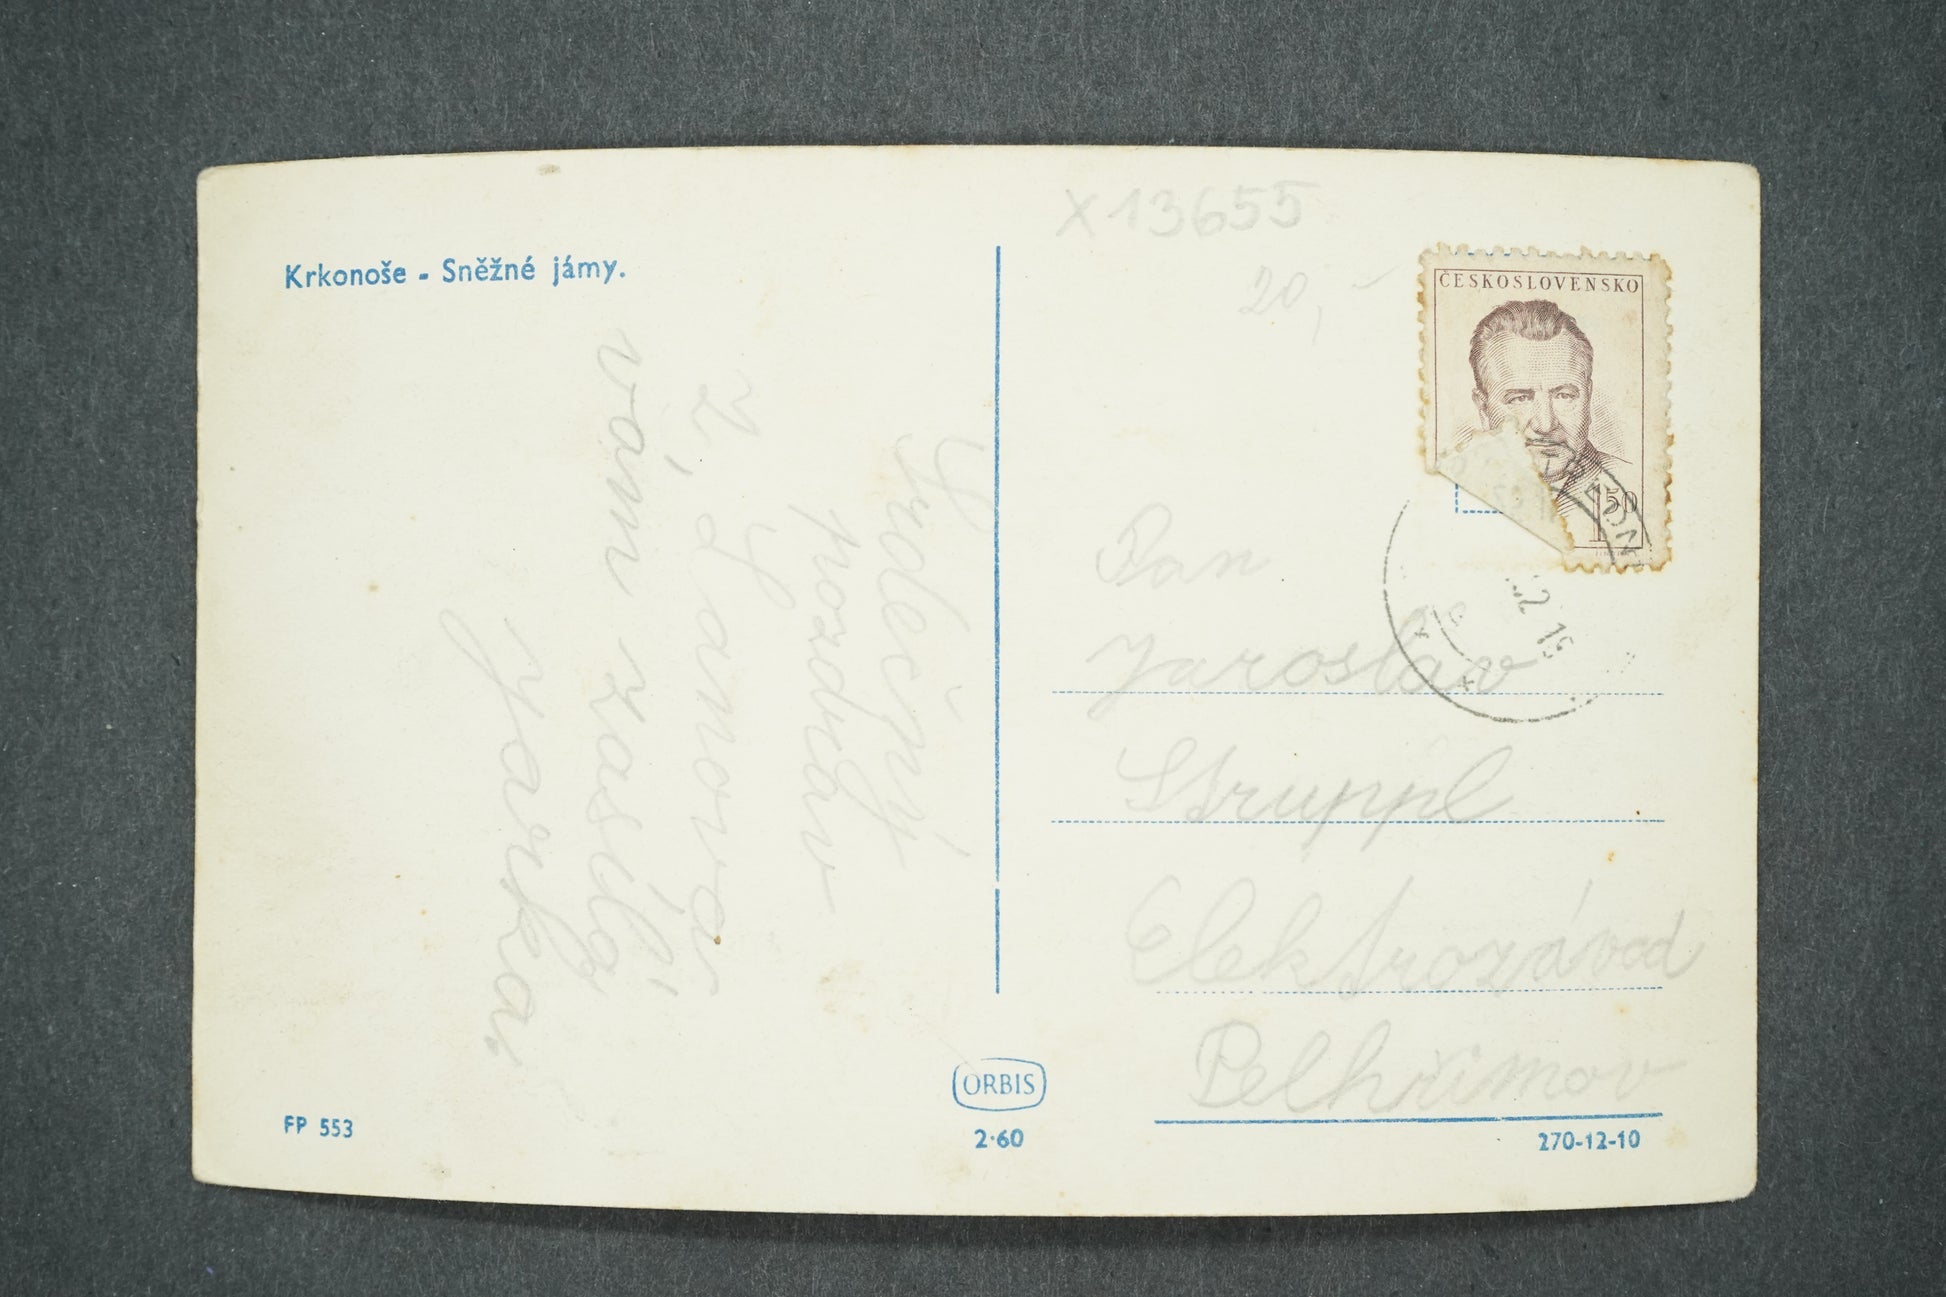 Krkonoše - Sněžné jámy.
Srdečný
pozdrav
z Janova
vám zaslá
Jarka
FP 553
ORBIS
2·60
X 13655
20,-
ČESKOSLOVENSKO
1.50
Pan
Jaroslav
Struppl
Elektrozávod
Pelhřimov
270-12-10